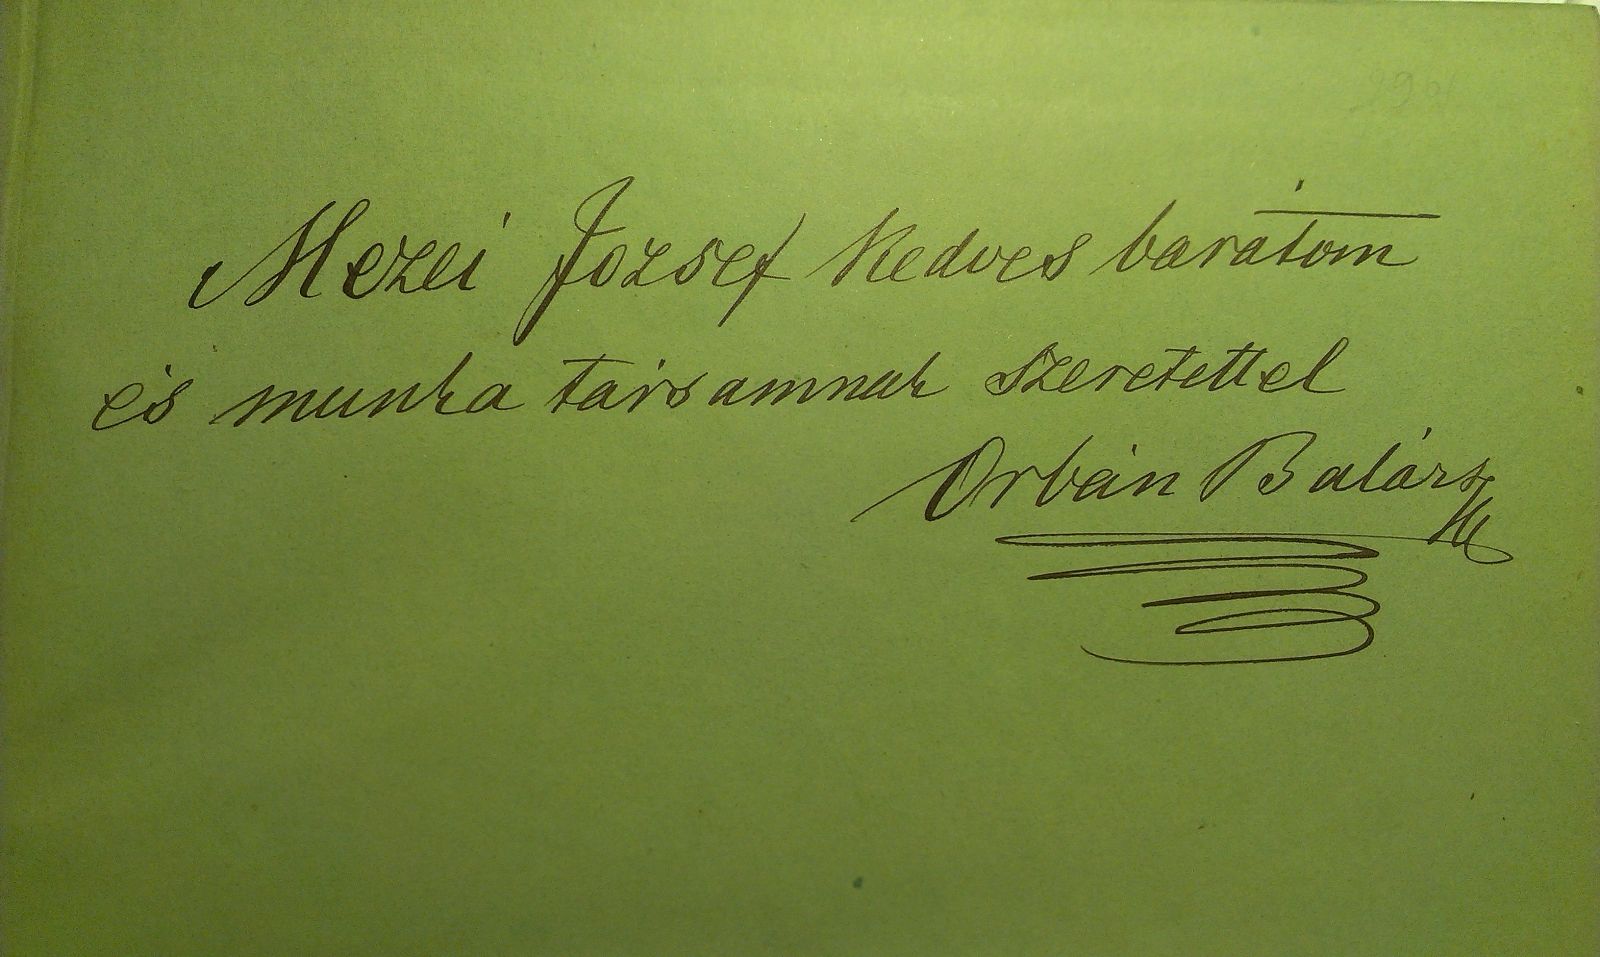 Mezei József kedves barátom
és munka társamnak szeretettel
Orbán Balázs